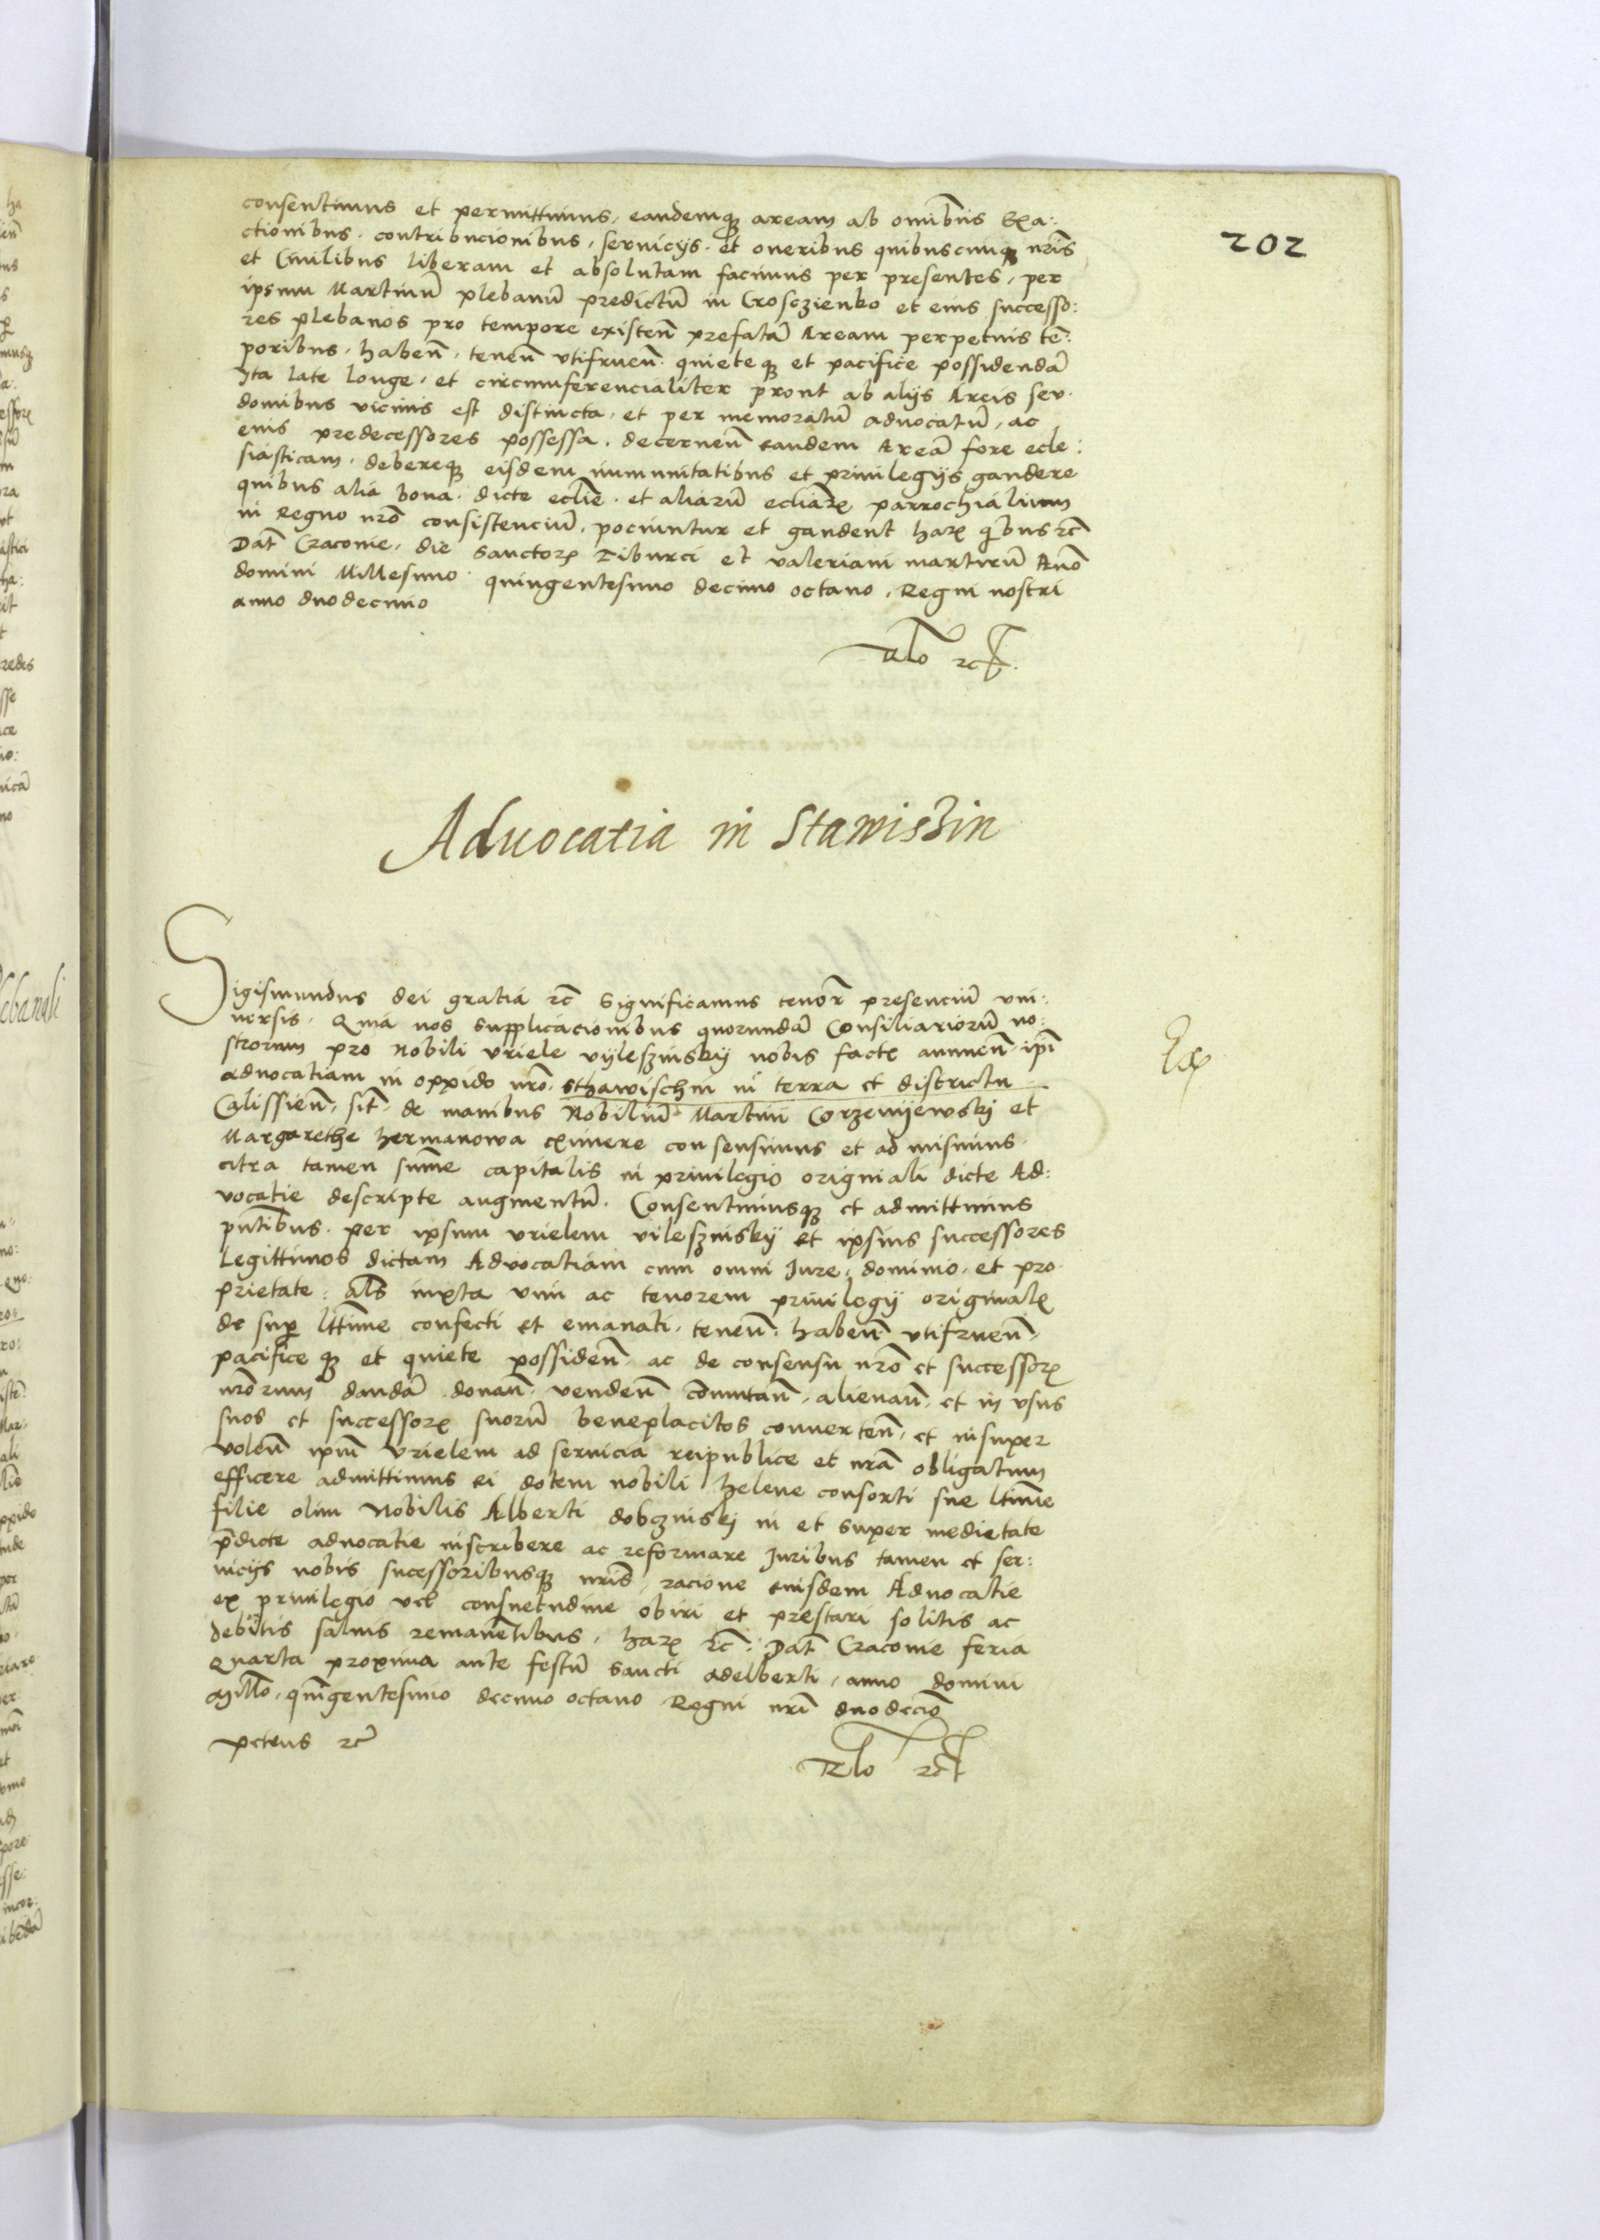 202
consentimus et permittimus, eandemq aream ab omībus Exa:
ctionibus. contribucionibus, servicijs. et oneribus quibuscumq nrīs
et Civilibus liberam et absolutam facimus per presentes, per
ipsum Martinū plebanū predictū in Crosczienko et eius successo:
res plebanos pro tempore existeñ prefatā Aream perpetuis tē:
poribus, habeñ, teneñ vtifrueñ. quieteq et pacifice possidendā
Ita late longe, et circumferencialiter prout ab alijs Areis sev
domibus vicinis est distincta, et per memoratū advocatū, ac
eius predecessores possessa. decerneñ eandem Areā fore eccle:
siasticam. debereq eisdem immunitatibus et privilegijs gaudere
quibus alia bona. dicte eccliē. et aliarū ecclīaꝝ parrochialium
in Regno nrō consistenciū, pociuntur et gaudent haꝝ qībus rc̄
Dat̄ Cracovie, die Sanctoꝝ Tiburci et valeriani martirū Annō
domini Millesimo quingentesimo decimo octavo, Regni nostri
anno duodecimo
Rlo rc̄t
Advocatia in Stawiszin
Sigismundus dei gratia rc̄ Significamus tenor̄ presenciū vni:
versis. Quia nos supplicacionibus quorundā Consiliariorū no:
strorum pro Nobili vriele vyleszinskij nobis factꝭ annueñ ip̄i
advocatiam in oppido nrō. Sthawischin in terra et districtu
Calissieñ. sit̄. de manibus Nobiliū Martini Corzenijewskj et
Margarethe hermanowa eximere consensimus et admisimus.
citra tamen sūme capitalis in privilegio originali dicte Ad:
vocatie descripte augmentū. Consentimusq et admittimus
pn̄tibus. per ipsum vrielem vileszinskij et ipsius successores
Legittimos dictam Advocatiam cum omni Jure, dominio. et pro
prietate. als̄ iuxta vim ac tenorem privilegij originalꝭ
de sup̄ ltt̄ime confecti et emanati. teneñ. habeñ vtifrueñ.
pacifice q et quiete possideñ. ac de consensu nrō et successoꝝ
nrōrum dandā donañ. vendeñ com̄utañ. alienañ. et in vsus
suos et successoꝝ suorū beneplacitos converteñ, et insuper
voleñ ip̄m vrielem ad servicia reipublice et nrā obligatum
efficere admittimus ei dotem nobili helene consorti sue ltīme
filie olim Nobilis Alberti dobczinskj in et super medietate
p̄dicte advocatie inscribere ac reformare Juribus tamen et ser:
vicijs nobis sucessoribusq nrīs, racione eiusdem Advocatie
ex privilegio vel consuetudine obiri et prestari solitis ac
debitis salvis remaneñtibus, haꝝ rc̄. Dat̄ Cracovie feria
Quarta proxima ante festū sancti adelberti, anno domini
Millō. quīngentesimo decimo octavo Regni nrī duodeciō
pñteus rc̄
Rlo rc̄t